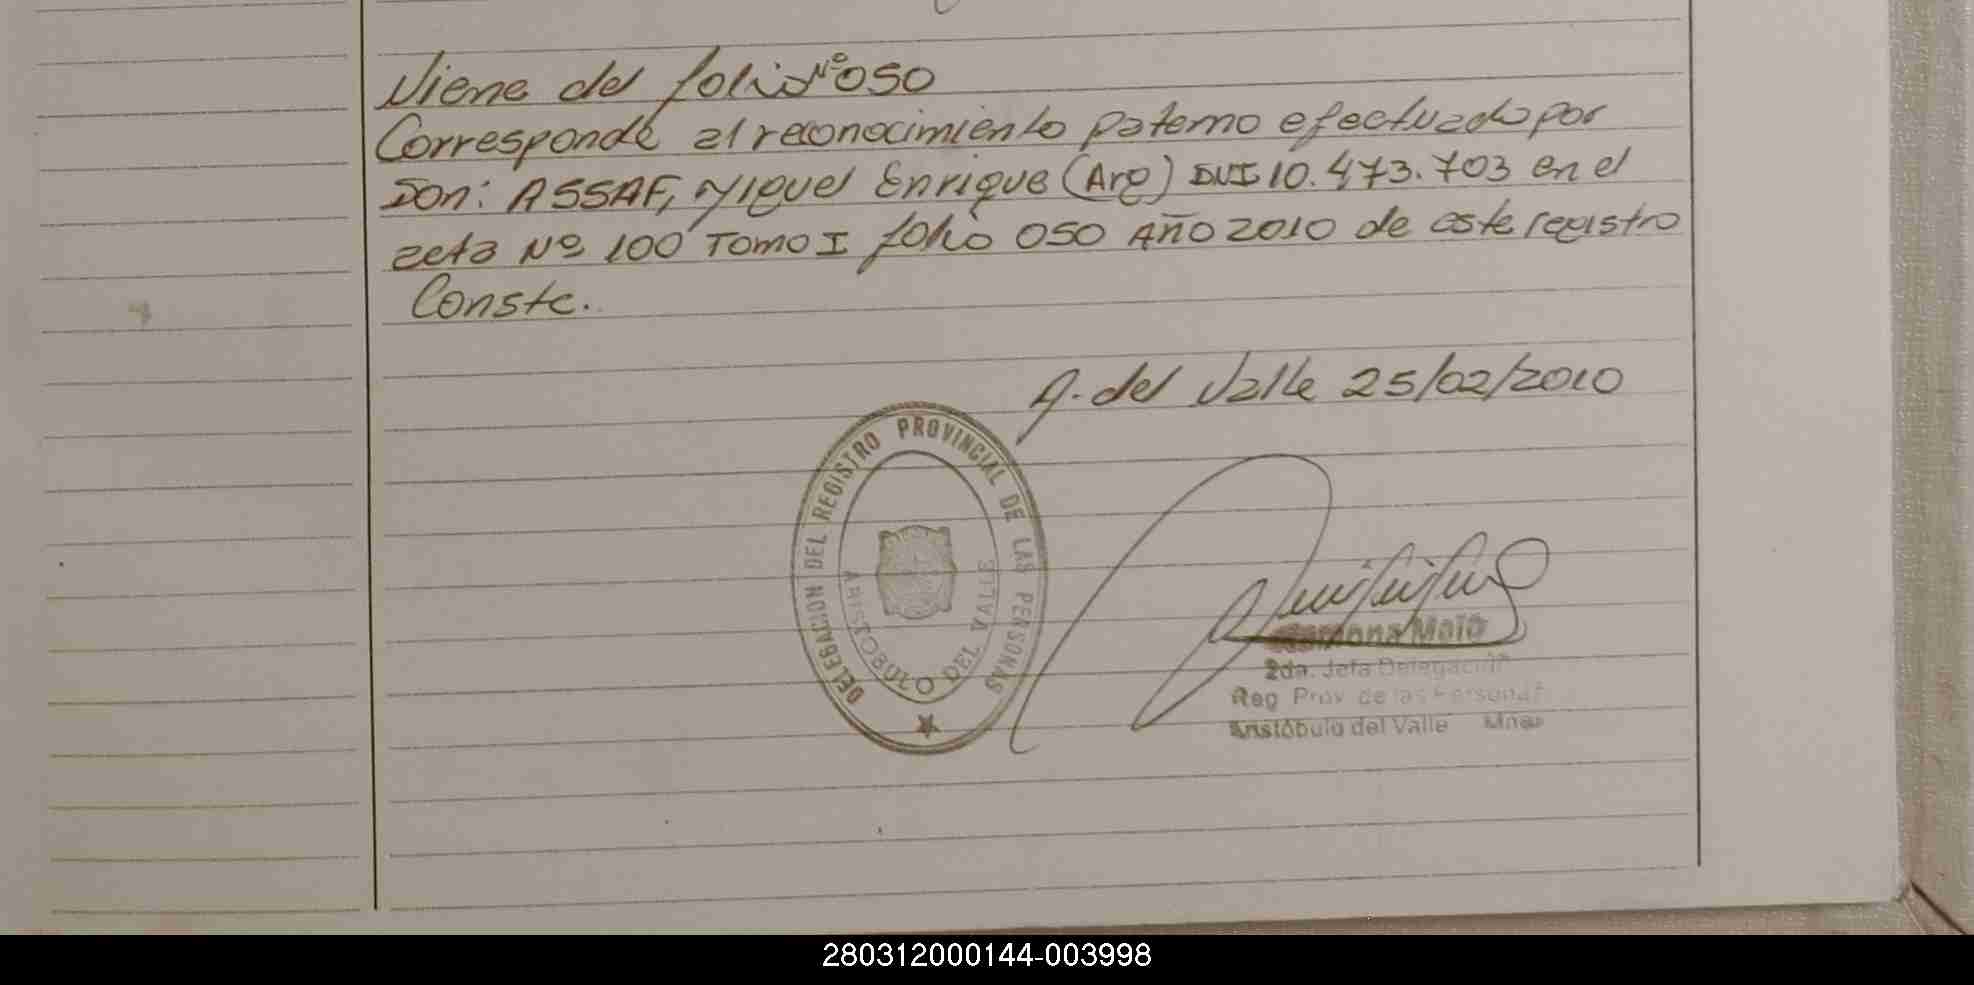 Viene del folio Nº 050
Corresponde al reconocimiento paterno efectuado por
Don: ASSAF, Miguel Enrique (Arg) DNI 10.473.703 en el
acta Nº 100 Tomo I folio 050 Año 2010 de este registro
Conste.
A. del Valle 25/02/2010
DELEGACION DEL REGISTRO PROVINCIAL DE LAS PERSONAS
ARISTOBULO DEL VALLE
Ramona
2da. Jefa Delegación
Reg Prov de las Personas
Aristóbulo del Valle Mnes
280312000144-003998